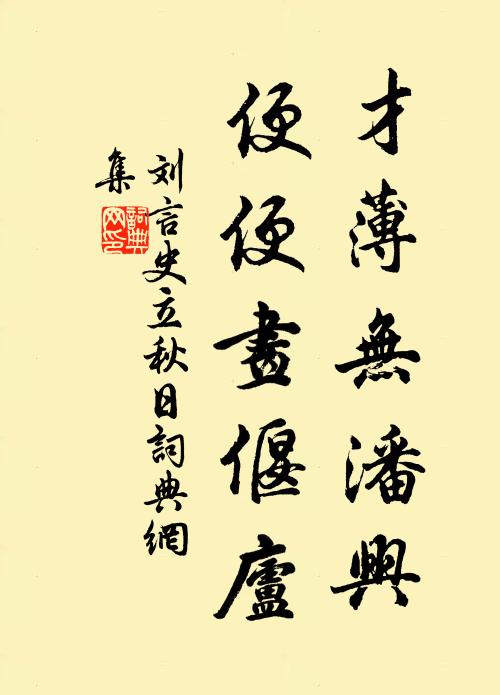 才薄無潘興
便便晝偃廬
刘言史立秋日詞典網
集
詞典
网印